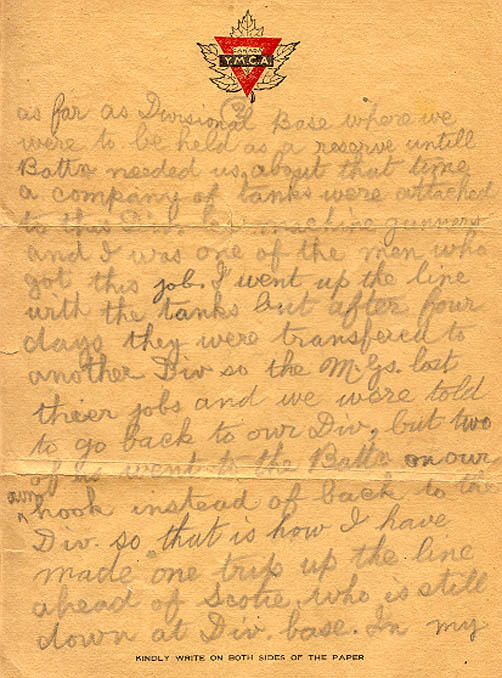 CANADA
Y.M.C.A.
as far as Divisional Base where we
were to be held as a reserve untill
Battn needed us, about that time
a company of tanks were attached
to this Div. machine gunners
and I was one of the men who
got this job. I went up the line
with the tanks but after four
days they were transfered to
another Div so the M.Gs. lost
theer jobs and we were told
to go back to our Div, but two
of us went to the Battn on our
own hook instead of back to the
Div. so that is how I have
made one trip up the line
ahead of Scotie, who is still
down at Div. base. In my
KINDLY WRITE ON BOTH SIDES OF THE PAPER